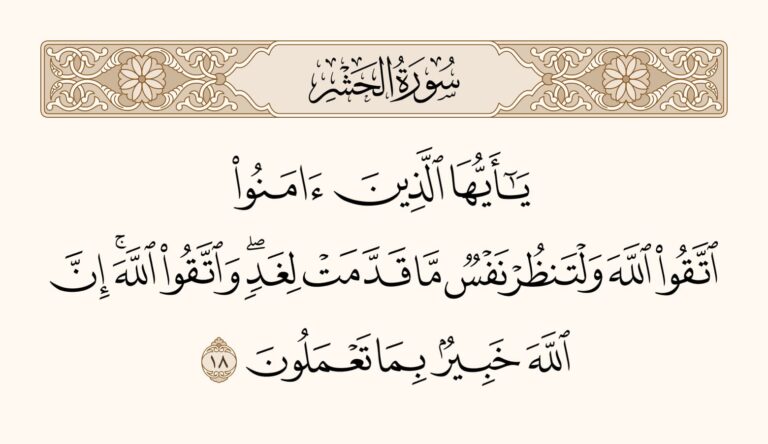 سُورَةُ الحَشْرِ
يَـٰٓأَيُّهَا ٱلَّذِينَ ءَامَنُوا۟
ٱتَّقُوا۟ ٱللَّهَ وَلْتَنظُرْ نَفْسٌ مَّا قَدَّمَتْ لِغَدٍۖ وَٱتَّقُوا۟ ٱللَّهَۚ إِنَّ
ٱللَّهَ خَبِيرٌۢ بِمَا تَعْمَلُونَ ١٨